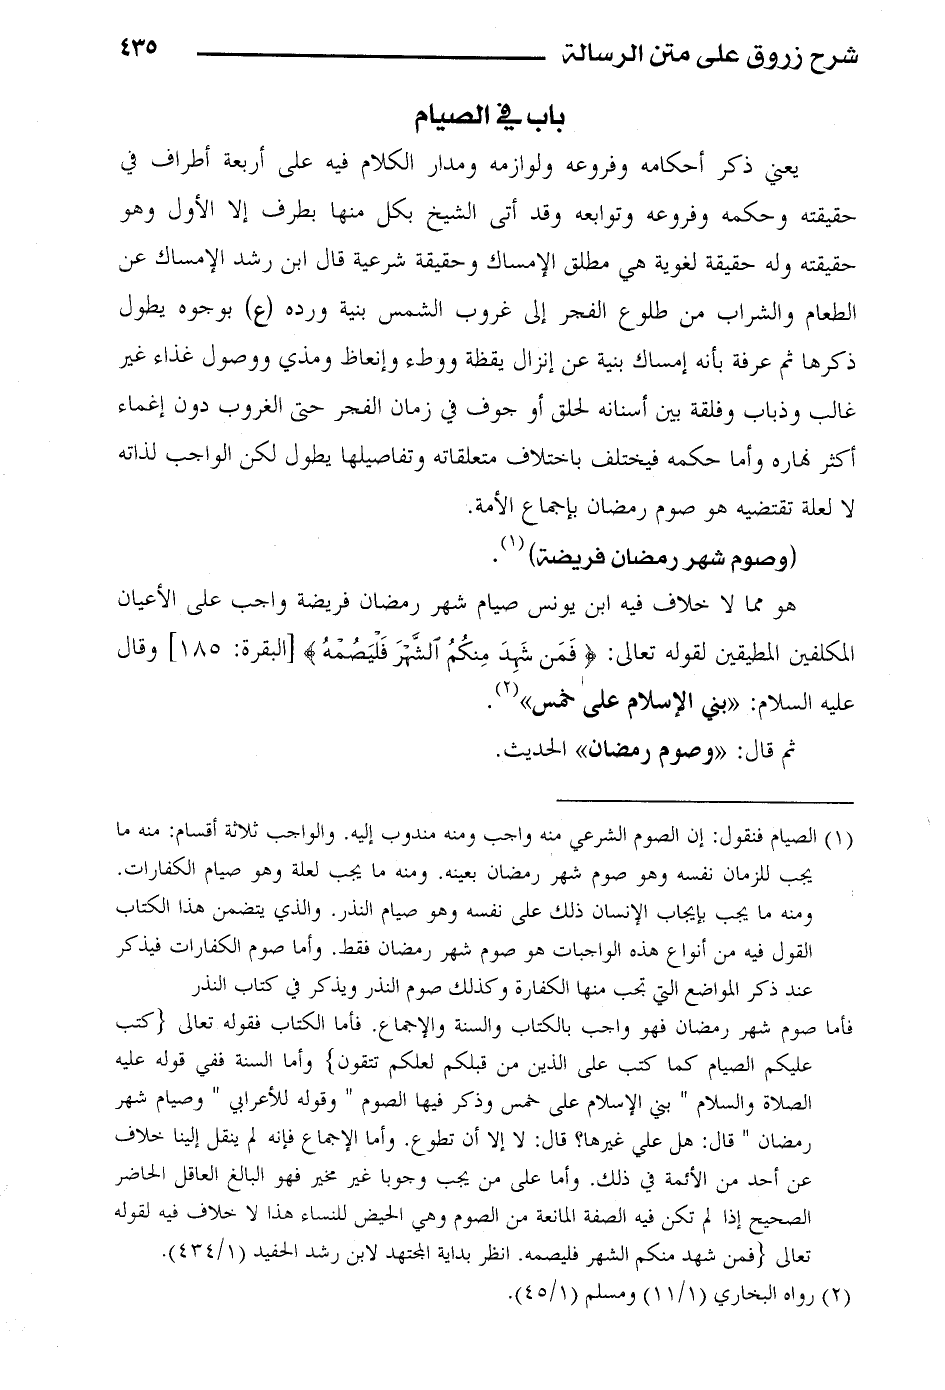 شرح زروق على متن الرسالة ٤٣٥
باب في الصيام
يعني ذكر أحكامه وفروعه ولوازمه ومدار الكلام فيه على أربعة أطراف في
حقيقته وحكمه وفروعه وتوابعه وقد أتى الشيخ بكل منها بطرف إلا الأول وهو
حقيقته وله حقيقة لغوية هي مطلق الإمساك وحقيقة شرعية قال ابن رشد الإمساك عن
الطعام والشراب من طلوع الفجر إلى غروب الشمس بنية ورده (ع) بوجوه يطول
ذكرها ثم عرفة بأنه إمساك بنية عن إنزال يقظة ووطء وإنعاظ ومذي ووصول غذاء غير
غالب وذباب وفلقة بين أسنانه لحلق أو جوف في زمان الفجر حتى الغروب دون إغماء
أكثر نهاره وأما حكمه فيختلف باختلاف متعلقاته وتفاصيلها يطول لكن الواجب لذاته
لا لعلة تقتضيه هو صوم رمضان بإجماع الأمة.
(وصوم شهر رمضان فريضة)(١).
هو مما لا خلاف فيه ابن يونس صيام شهر رمضان فريضة واجب على الأعيان
المكلفين المطيقين لقوله تعالى: ﴿ فَمَن شَهِدَ مِنكُمُ ٱلشَّهْرَ فَلْيَصُمْهُ ﴾ [البقرة: ١٨٥] وقال
عليه السلام: «بني الإسلام على خمس»(٢).
ثم قال: «وصوم رمضان» الحديث.
(١) الصيام فنقول: إن الصوم الشرعي منه واجب ومنه مندوب إليه. والواجب ثلاثة أقسام: منه ما
يجب للزمان نفسه وهو صوم شهر رمضان بعينه. ومنه ما يجب لعلة وهو صيام الكفارات.
ومنه ما يجب بإيجاب الإنسان ذلك على نفسه وهو صيام النذر. والذي يتضمن هذا الكتاب
القول فيه من أنواع هذه الواجبات هو صوم شهر رمضان فقط. وأما صوم الكفارات فيذكر
عند ذكر المواضع التي تجب منها الكفارة وكذلك صوم النذر ويذكر في كتاب النذر
فأما صوم شهر رمضان فهو واجب بالكتاب والسنة والإجماع. فأما الكتاب فقوله تعالى {كتب
عليكم الصيام كما كتب على الذين من قبلكم لعلكم تتقون} وأما السنة ففي قوله عليه
الصلاة والسلام " بني الإسلام على خمس وذكر فيها الصوم " وقوله للأعرابي " وصيام شهر
رمضان " قال: هل علي غيرها؟ قال: لا إلا أن تطوع. وأما الإجماع فإنه لم ينقل إلينا خلاف
عن أحد من الأئمة في ذلك. وأما على من يجب وجوبا غير مخير فهو البالغ العاقل الحاضر
الصحيح إذا لم تكن فيه الصفة المانعة من الصوم وهي الحيض للنساء هذا لا خلاف فيه لقوله
تعالى {فمن شهد منكم الشهر فليصمه. انظر بداية المجتهد لابن رشد الحفيد (٤٣٤/١).
(٢) رواه البخاري (١١/١) ومسلم (٤٥/١).